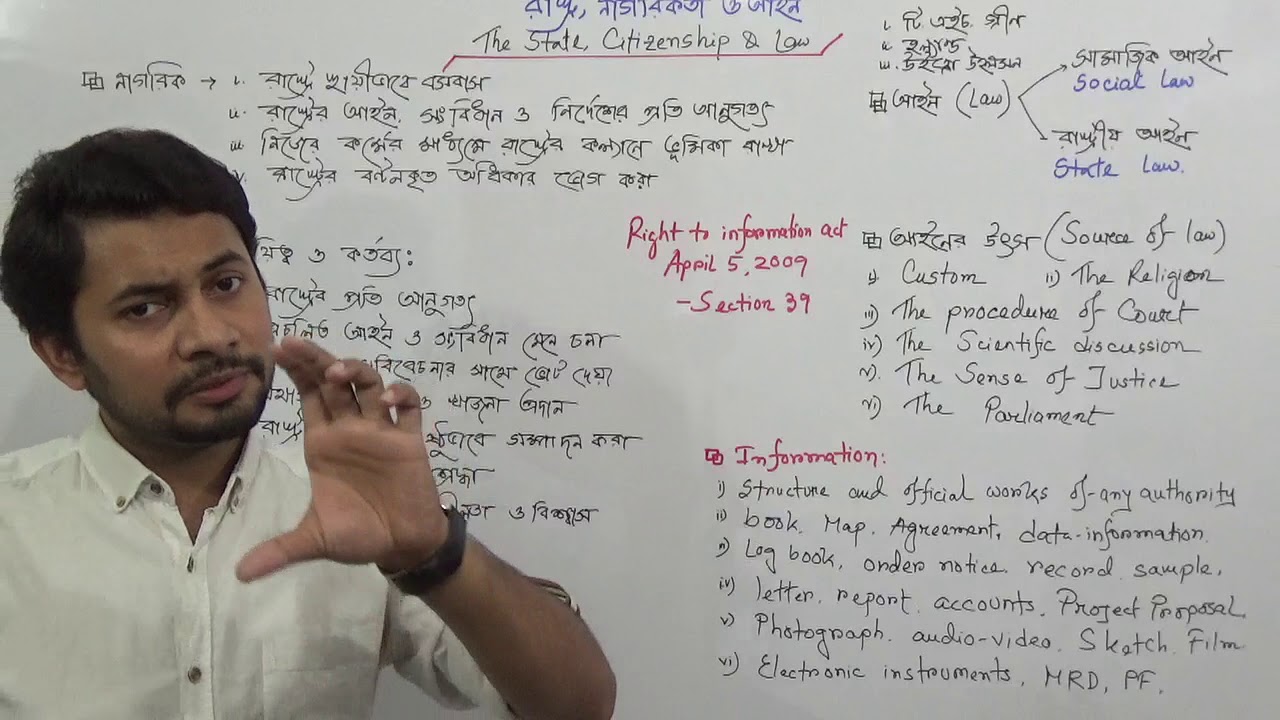 রাষ্ট্র, নাগরিকতা ও আইন
The State, Citizenship & Law
নাগরিক → i. রাষ্ট্রে স্থায়ীভাবে বসবাস
ii. রাষ্ট্রের আইন, সংবিধান ও নির্দেশের প্রতি আনুগত্য
iii নিজের কর্মের মাধ্যমে রাষ্ট্রের কল্যানে ভূমিকা রাখা
রাষ্ট্রের বণ্টনকৃত অধিকার ভোগ করা
ও কর্তব্য:
রাষ্ট্রের প্রতি আনুগত্য
আইন ও সংবিধান মেনে চলা
বিবেচনার সাথে ভোট দেয়া
ও খাজনা প্রদান
সম্পাদন করা
শ্রদ্ধা
ও বিশ্বাস
Right to information act
April 5, 2009
- Section 39
i. টি এইচ. গ্রীন
ii. হল্যান্ড
iii. উইড্রো উইলসন
আইন (Law)
সামাজিক আইন
Social Law
রাষ্ট্রীয় আইন
State Law.
আইনের উৎস (Source of law)
i) Custom ii) The Religion
iii) The procedure of Court
iv) The Scientific discussion
v). The Sense of Justice
vi) The Parliament
Information:
i) Structure and official works of-any authority
ii) book. Map. Agreement, data-information.
Log book, order notice. record. sample.
iv) letter. report. accounts. Project Proposal
v) Photograph. audio-video. Sketch. Film
vi) Electronic instruments, MRD, PF.